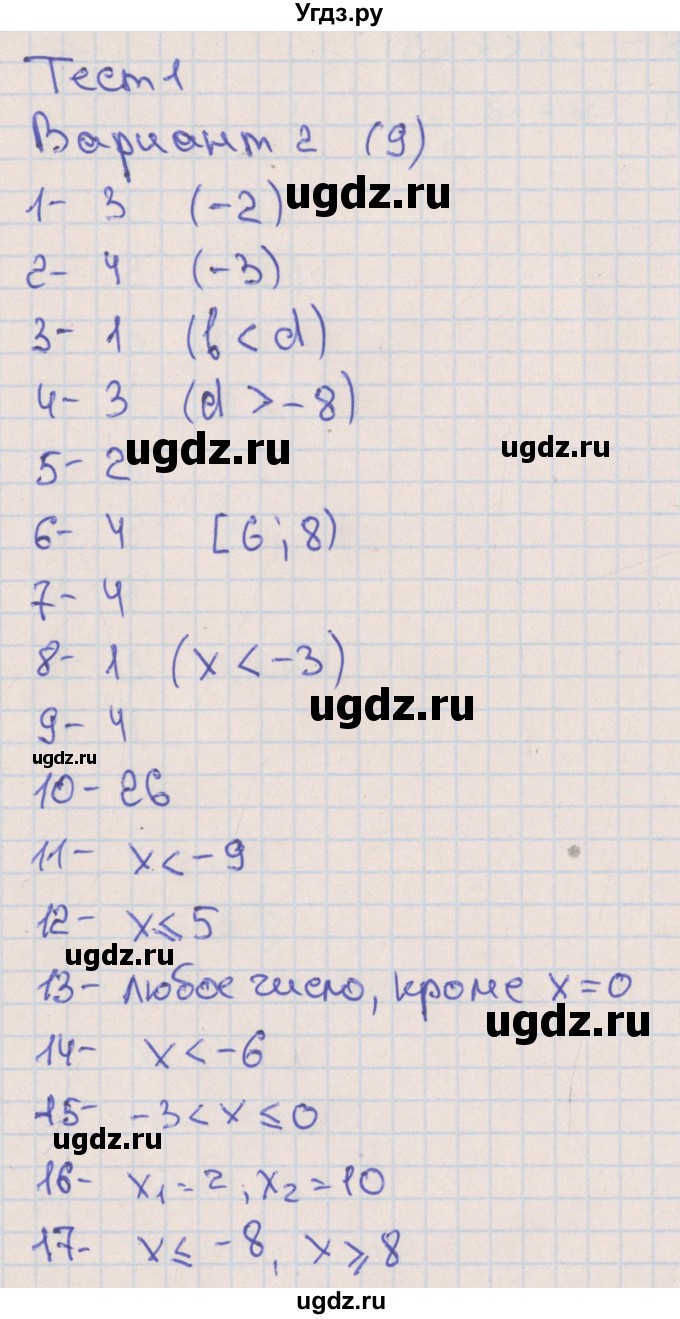 Угдз.ру
Тест 1
Вариант 2 (9)
1- 3 (-2)
ugdz.ru
2- 4 (-3)
3- 1 (b < d)
4- 3 (d > -8)
ugdz.ru
ugdz.ru
5- 2
6- 4 [6; 8)
7- 4
8- 1 (x < -3)
ugdz.ru
9- 4
ugdz.ru
10- 26
11- x < -9
12- x ≤ 5
ugdz.ru
13- любое число, кроме x = 0
ugdz.ru
14- x < -6
15- -3 < x ≤ 0
ugdz.ru
16- x₁ = 2, x₂ = 10
17- x ≤ -8, x ≥ 8
ugdz.ru